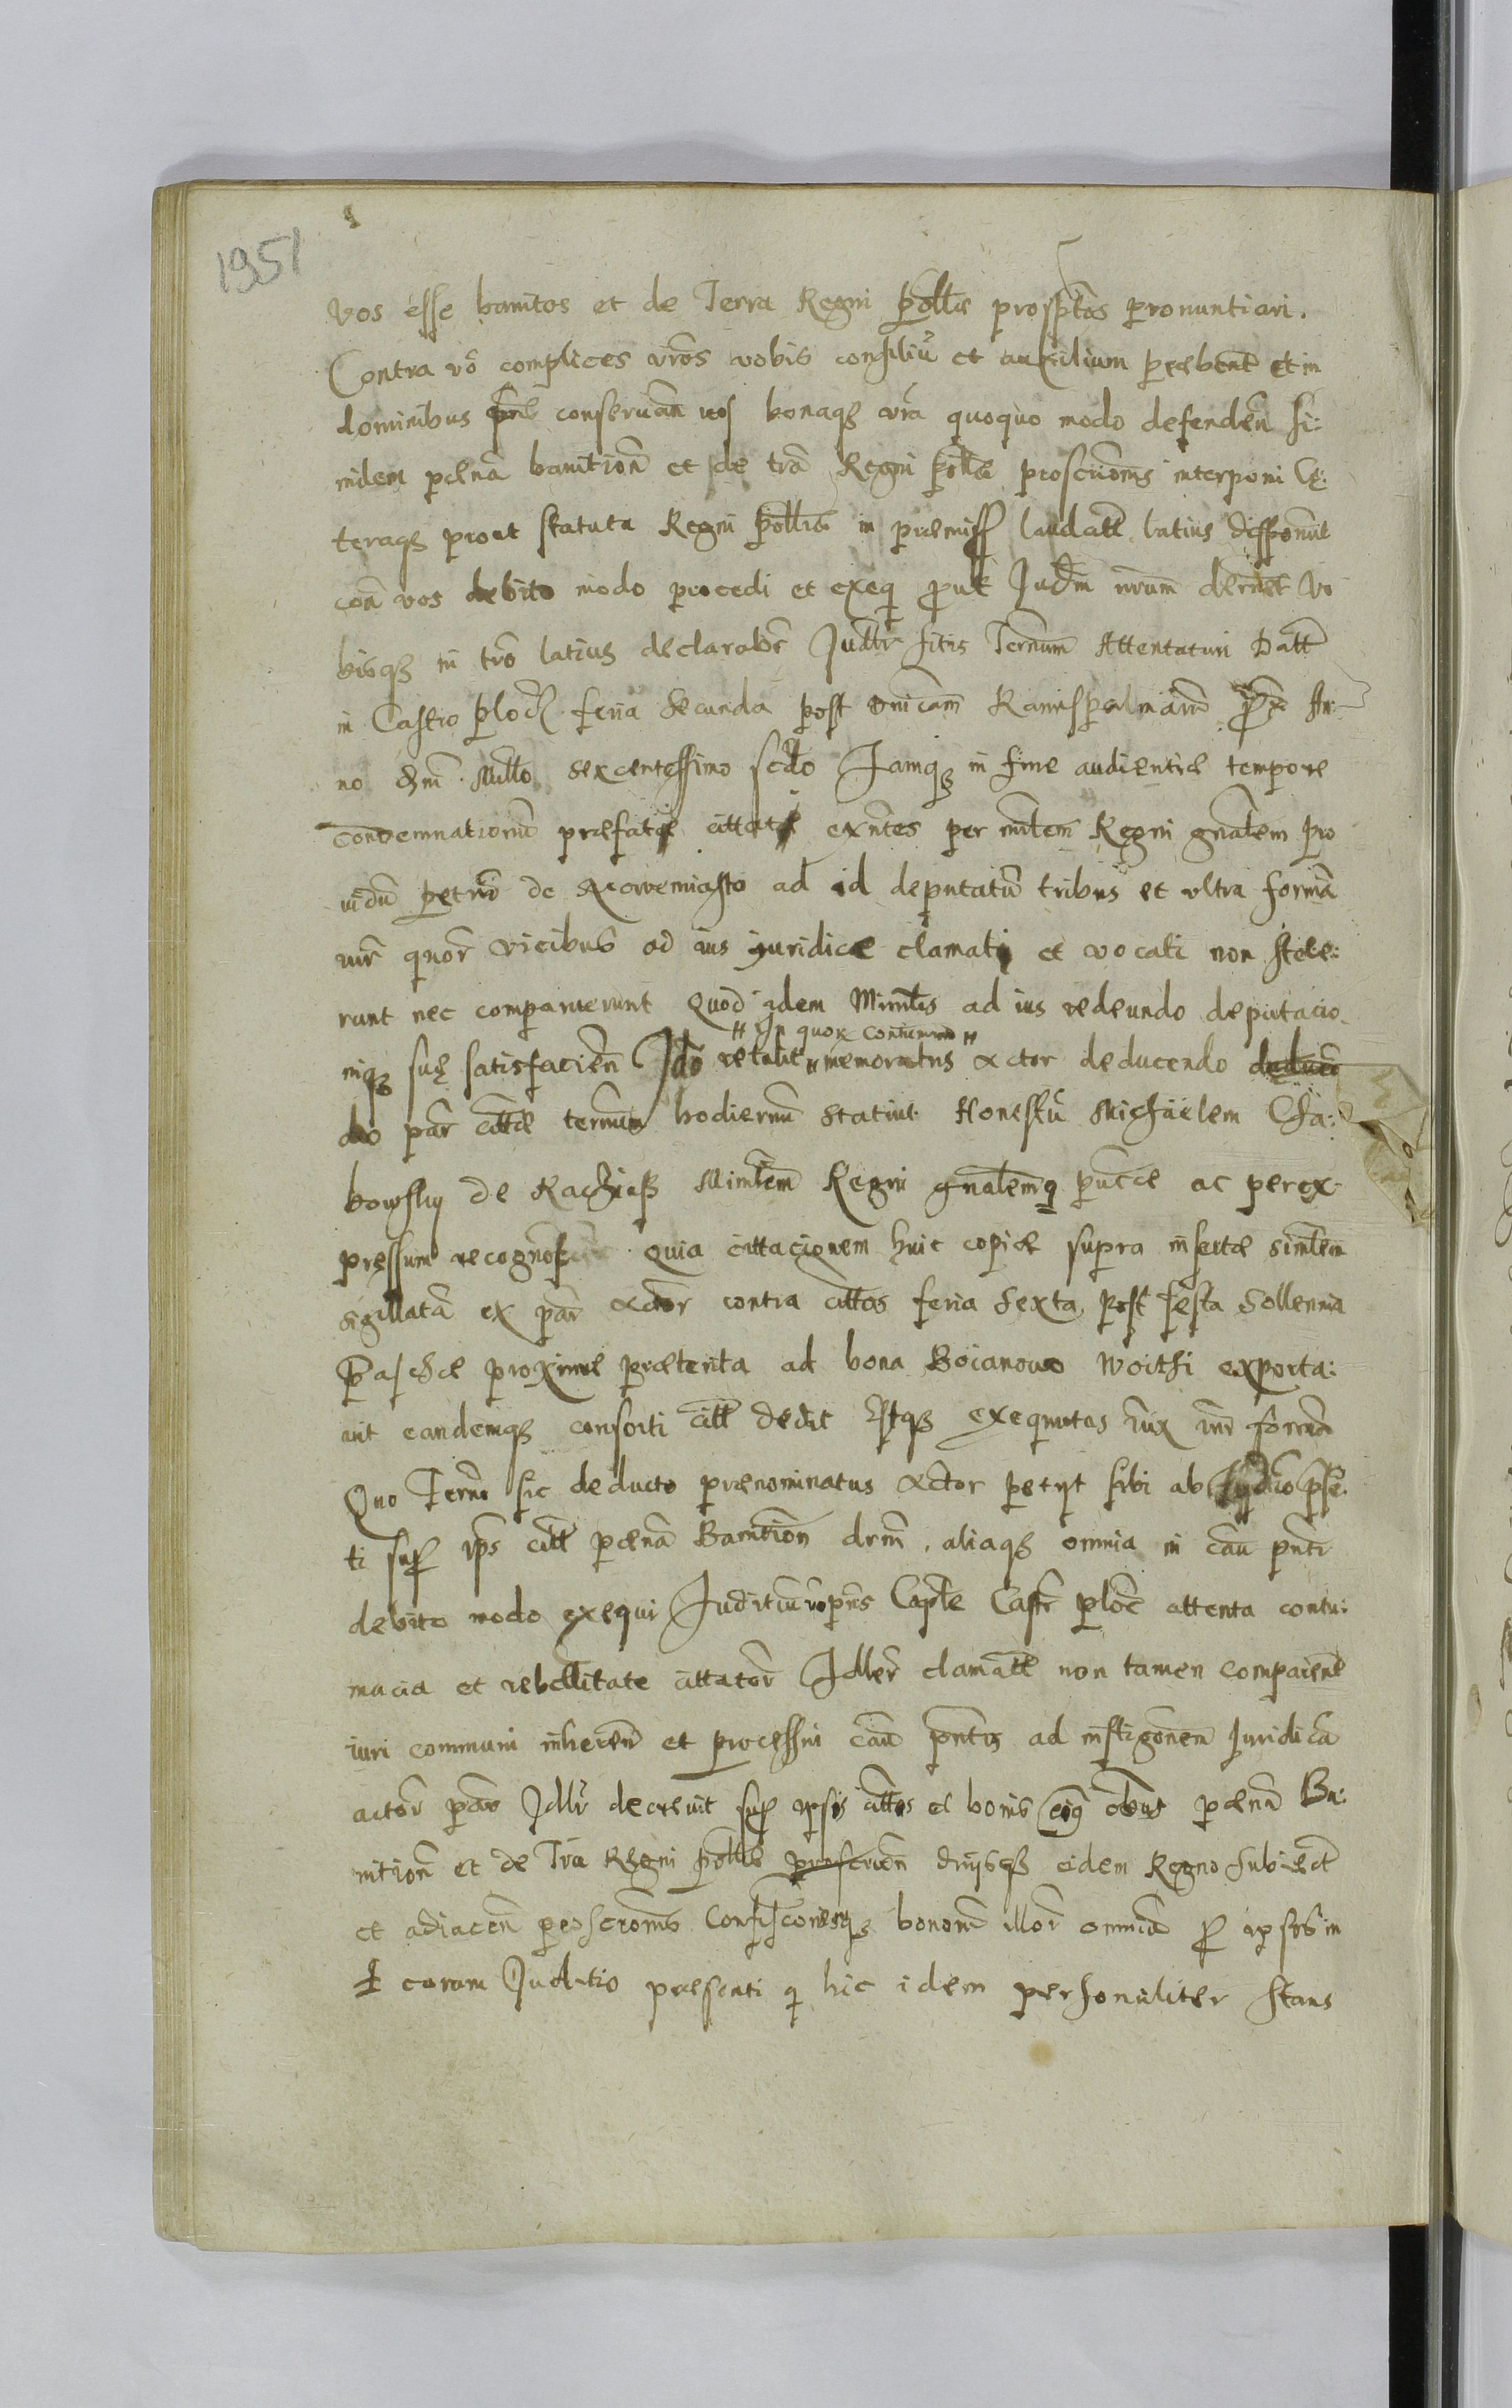 1951
vos esse banitos et de Terra Regni Pollie proscptos pronuntiari.
Contra vō complices vr̄os vobis consiliū et auxilium praebent et in
dominibus conseruan̄ vos bonaqȝ vr̄a quoquo modo defenden̄ si:
milem paenā banition̄ et de trā Regni Pollie proscrionis interponi Cę:
teraqȝ prout statuta Regni Pollie in praemiss laudatt latius disponunt
con̄ vos debito modo procedi et exeq prout Jud̄m nrum decernet Vo
bisqȝ in tr̄o latius declarabr̄ Judlr sitis Termnum Attentaturi Datt
in Castro Ploc feria Secunda post dnicam Ramispalmarū An:
no dnī Millo sexcentessimo scdo Jamqȝ in fine audientiae tempore
condemnationū praefati cittati exntes per mltem Regni gnalem pro
uidū Petrū de Nowemiasto ad id deputatū tribus et vltra formā
iur quor̄ vicibus ad ius juridicae clamati et vocati non stete:
runt nec comparuerunt quod idem Minlis ad ius redeundo deputacio
niqȝ suę satisfacien̄ Jdeo retulit " memoratus actor deducendo
" In quor contumia "
do par̄ cittae termnum hodiernū statuit Honestū Michaelem Cha:
bowsky de Raciąsz Minltem Regni gnalemq puncte ac perex
pressum recognos quia cittacionem huic copiae supra insertae similem
sigillatā ex par̄ actor contra cittos feria Sexta post festa Sollennia
Paschae proxime praeterita ad bona Boianowo Woithi exporta:
uit eandemqȝ consorti citt dedit Atqȝ exequutas iux iur formā
Quo Term̄o sic deducto praenominatus actor petyt sibi ab Judicio prse
ti sup ips citt paenā Banition̄ drm̄, aliaqȝ omnia in cau pnti
debito modo exequi Juditiū pns Capte Castr Ploc attenta contu:
macia et rebellitate cittator̄ Jdler̄ clamatt non tamen comparent
iuri communi inheren̄ et processui cau pntis ad instigonem juridicā
actor par Jdlr̄ decreuit sup ipsis cittos et bonis eoq obus paenā Ba:
nition̄ et de Tra Regni Pollie proscrion̄ dnysqȝ eidem Regno Subiect
et adiacen̄ proscronis Confisconesqȝ bonorū illor omniū pro ipsis in
et coram Juditio praesenti q hic idem personaliter stans